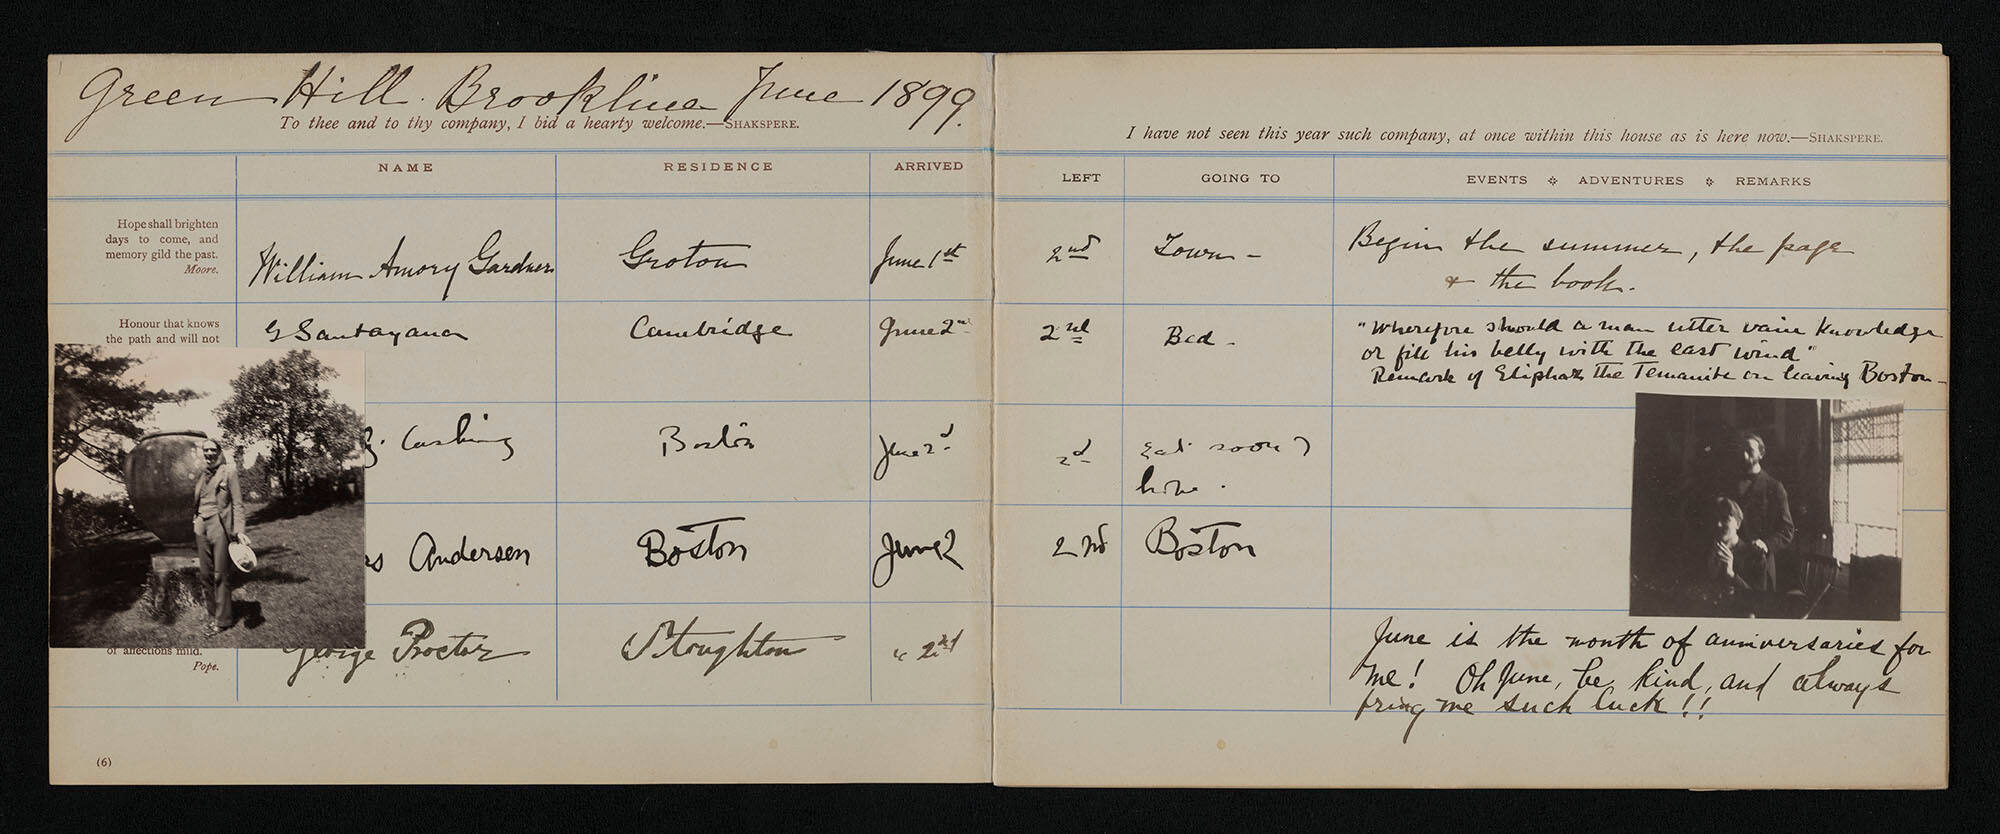 Green Hill. Brookline June 1899.
To thee and to thy company, I bid a hearty welcome.—SHAKSPERE.
NAME RESIDENCE ARRIVED
Hope shall brighten
days to come, and
memory gild the past.
Moore.
William Amory Gardner Groton June 1st
Honour that knows
the path and will not
G Santayana Cambridge June 2nd
Cushing Boston June 2d
Andersen Boston June 2
of affections mild.
Pope.
George Proctor Stoughton " 2nd
(6)
I have not seen this year such company, at once within this house as is here now.—SHAKSPERE.
LEFT GOING TO EVENTS ADVENTURES REMARKS
2nd Town - Begin the summer, the page
& the book.
2nd Bed - "Wherefore should a man utter vain knowledge
or fill his belly with the east wind"
Remark of Eliphaz the Temanite on leaving Boston-
2d
2nd Boston
June is the month of anniversaries for
me! Oh June, be kind, and always
bring me such luck!!